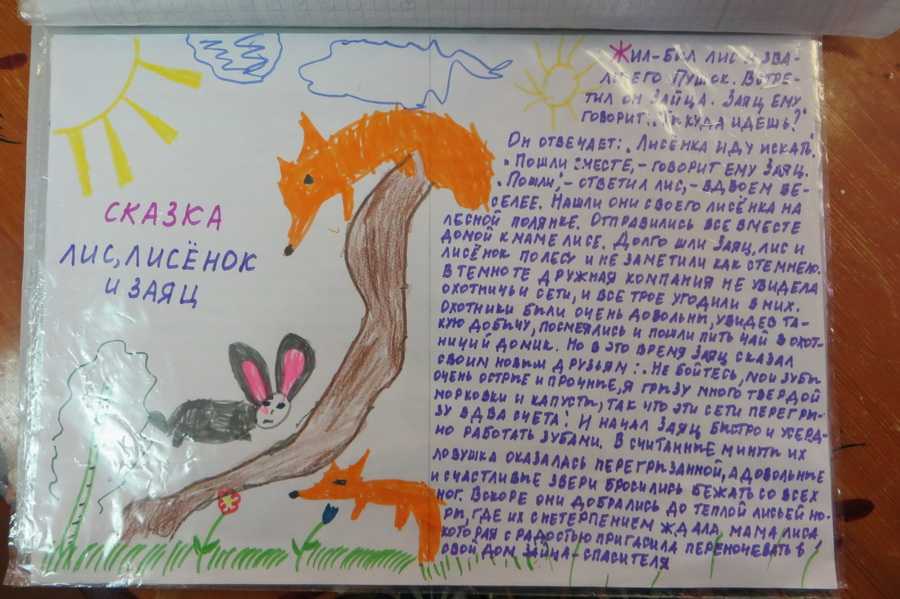 СКАЗКА
ЛИС, ЛИСЁНОК
И ЗАЯЦ
ЖИЛ-БЫЛ ЛИС И ЗВА-
ЛИ ЕГО ПУШОК. ВСТРЕ-
ТИЛ ОН ЗАЙЦА. ЗАЯЦ ЕМУ
ГОВОРИТ: КУДА ИДЕШЬ?"
ОН ОТВЕЧАЕТ: „ЛИСЕНКА ИДУ ИСКАТЬ".
„ПОШЛИ ВМЕСТЕ, - ГОВОРИТ ЕМУ ЗАЯЦ.
„ПОШЛИ", - ОТВЕТИЛ ЛИС, - ВДВОЕМ ВЕ-
СЕЛЕЕ. НАШЛИ ОНИ СВОЕГО ЛИСЁНКА НА
ЛЕСНОЙ ПОЛЯНКЕ. ОТПРАВИЛИСЬ ВСЕ ВМЕСТЕ
ДОМОЙ К МАМЕ ЛИСЕ. ДОЛГО ШЛИ ЗАЯЦ, ЛИС И
ЛИСЁНОК ПО ЛЕСУ И НЕ ЗАМЕТИЛИ КАК СТЕМНЕЛО.
В ТЕМНОТЕ ДРУЖНАЯ КОМПАНИЯ НЕ УВИДЕЛА
ОХОТНИЧЬИ СЕТИ, И ВСЕ ТРОЕ УГОДИЛИ В НИХ.
ОХОТНИКИ БЫЛИ ОЧЕНЬ ДОВОЛЬНЫ, УВИДЕВ ТА-
КУЮ ДОБЫЧУ, ПОСМЕЯЛИСЬ И ПОШЛИ ПИТЬ ЧАЙ В ОХОТ-
НИЧИЙ ДОМИК. НО В ЭТО ВРЕМЯ ЗАЯЦ СКАЗАЛ
СВОИМ НОВЫМ ДРУЗЬЯМ: „НЕ БОЙТЕСЬ, МОИ ЗУБЫ
ОЧЕНЬ ОСТРЫЕ И ПРОЧНЫЕ, Я ГРЫЗУ МНОГО ТВЕРДОЙ
МОРКОВКИ И КАПУСТЫ, ТАК ЧТО ЭТИ СЕТИ ПЕРЕГРЫ-
ЗУ В ДВА СЧЕТА". И НАЧАЛ ЗАЯЦ БЫСТРО И УСЕРД-
НО РАБОТАТЬ ЗУБАМИ. В СЧИТАННЫЕ МИНУТЫ ИХ
ЛОВУШКА ОКАЗАЛАСЬ ПЕРЕГРЫЗАННОЙ, А ДОВОЛЬНЫЕ
И СЧАСТЛИВЫЕ ЗВЕРИ БРОСИЛИСЬ БЕЖАТЬ СО ВСЕХ
НОГ. ВСКОРЕ ОНИ ДОБРАЛИСЬ ДО ТЕПЛОЙ ЛИСЬЕЙ НО-
РЫ, ГДЕ ИХ С НЕТЕРПЕНИЕМ ЖДАЛА, МАМА ЛИСА
КОТОРАЯ С РАДОСТЬЮ ПРИГЛАСИЛА ПЕРЕНОЧЕВАТЬ В
СВОЙ ДОМ ЗАЙЦА-СПАСИТЕЛЯ